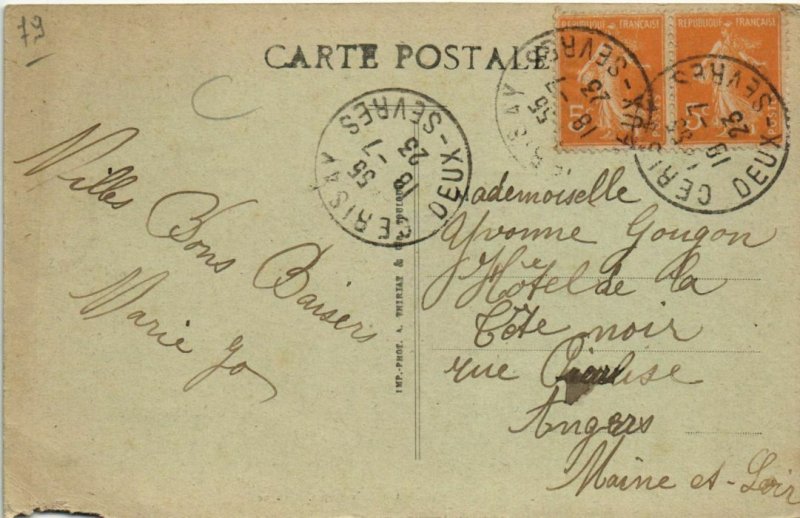 79
CARTE POSTALE
RÉPUBLIQUE FRANÇAISE
RÉPUBLIQUE FRANÇAISE
5
5
CERISAY
1 55
18-7
23
DEUX-SEVRES
CERISAY
55
18-7
23
DEUX-SEVRES
CERISAY
18-7
23
DEUX-SEVRES
Milles Bons Baisers
Marie Jo
IMP.-PHOT. A. THIRIAT & Cie, TOULOUSE
Mademoiselle
Yvonne Gougon
Hôtel de la
Tête noir
rue
Angers
Maine et-Loir